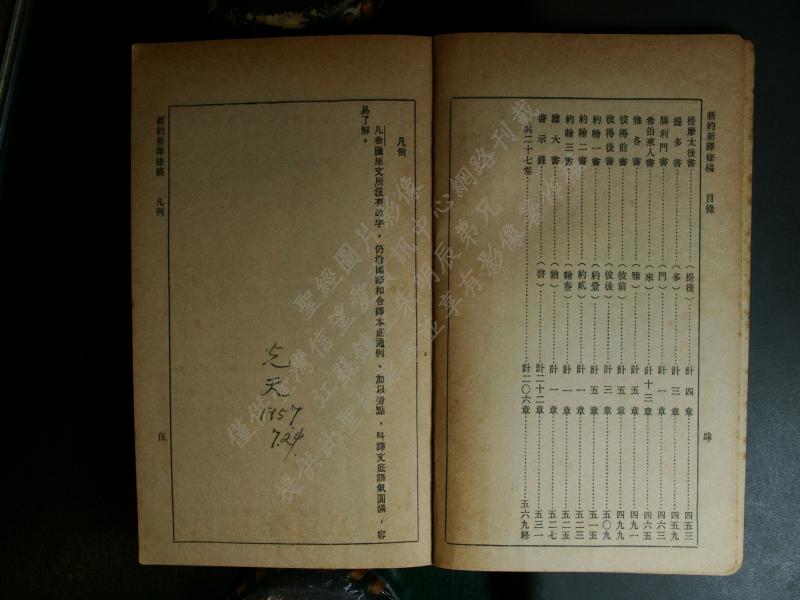 新約新譯修稿 目錄
肆
提摩太後書 (提後) 計四章 四五三
提多書 (多) 計三章 四五九
腓利門書 (門) 計一章 四六三
希伯來人書 (來) 計十三章 四六五
雅各書 (雅) 計五章 四九一
彼得前書 (彼前) 計五章 四九九
彼得後書 (彼後) 計三章 五〇九
約翰一書 (約壹) 計五章 五一五
約翰二書 (約貳) 計一章 五二三
約翰三書 (約叁) 計一章 五二五
猶大書 (猶) 計一章 五二七
啓示錄 (啓) 計二十二章 五三一
共二十七卷 計二〇六章 五六九終
凡例
凡希臘原文所沒有的字，仍沿國語和合譯本底通例、加以旁點，叫譯文底語氣圓滿，容
易了解。
新約新譯修稿 凡例
伍
1957
7.24
聖經圖片影像
僅供臺灣信望愛資訊中心網路刊載
朱明辰弟兄
享有影像著作權